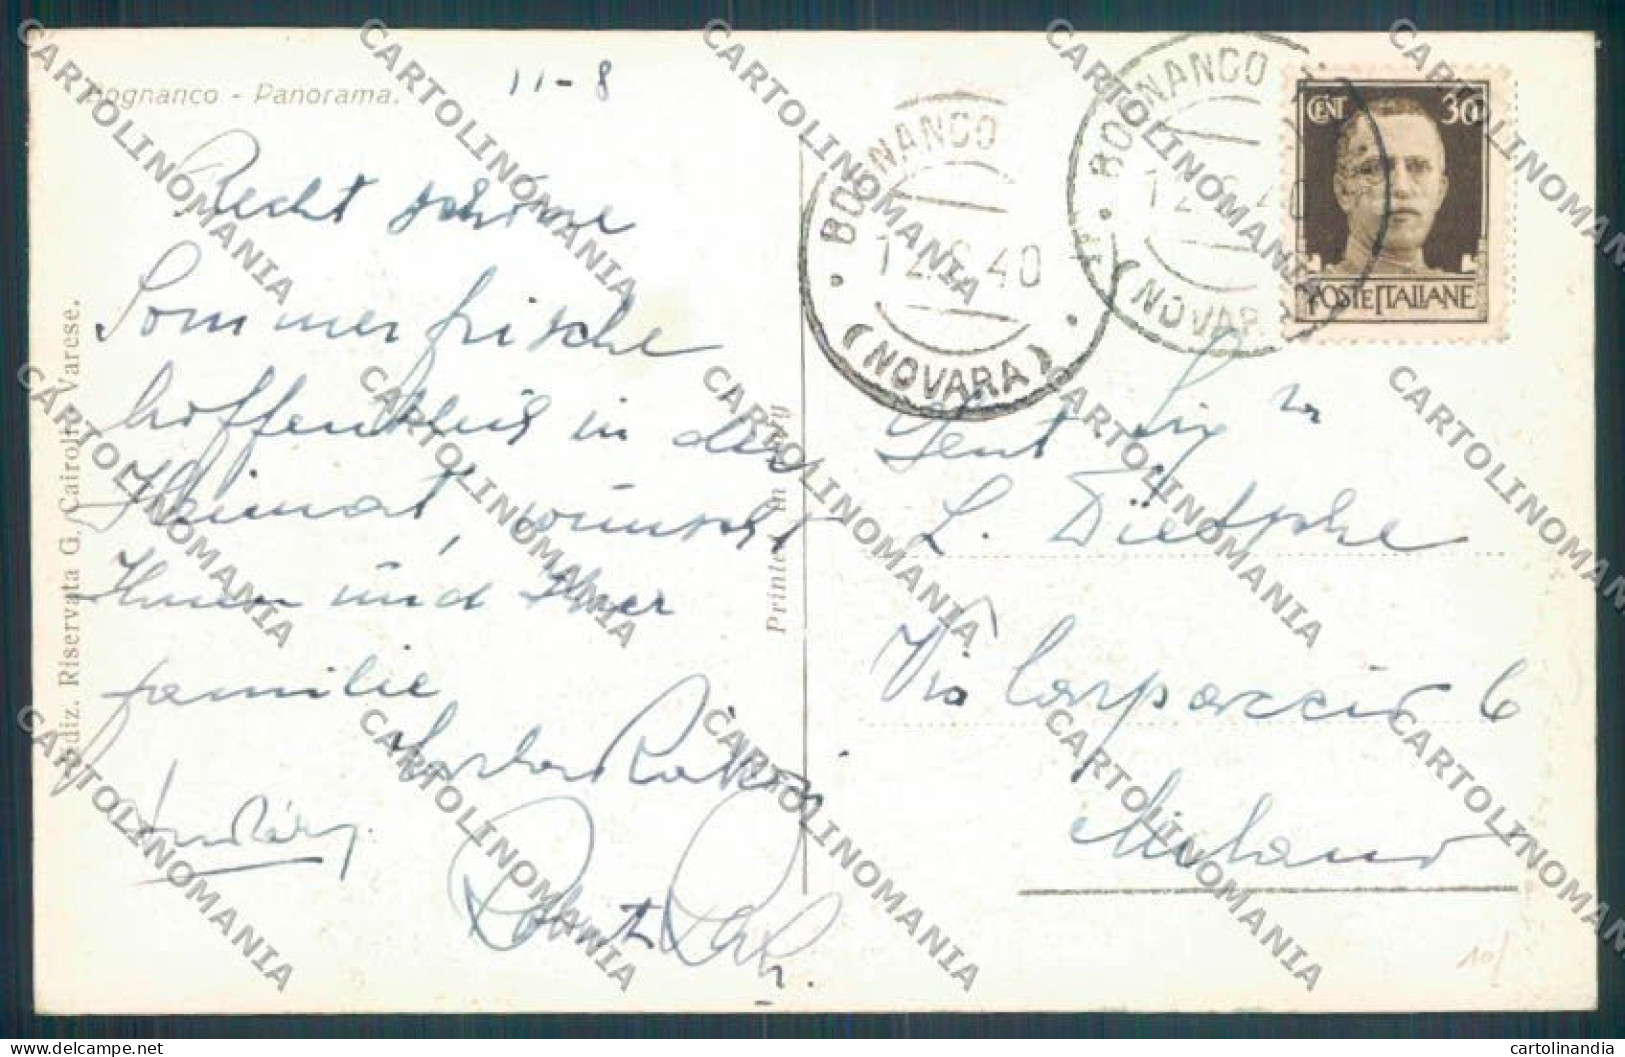 Bognanco - Panorama.
11-8
Recht schöne
Sommerfrische
hoffentlich in der
Heimat, wünscht
Ihnen und Ihrer
familie
Ediz. Riservata G. Cairoli - Varese.
Printed in Italy
BOGNANCO
12.8.40
(NOVARA)
BOGNANCO
12.8.40
(NOVARA)
CENT 30
POSTE ITALIANE
Gent Sig
L.
Via Carpaccio 6
Milano
10/
CARTOLINOMANIA
delcampe.net
cartolinandia